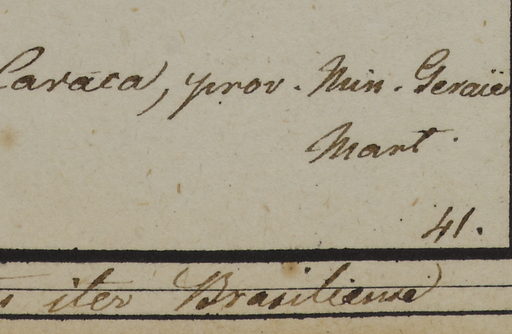 Caraca, prov. Min. Geraës
Mart.
41.
iter Brasiliense